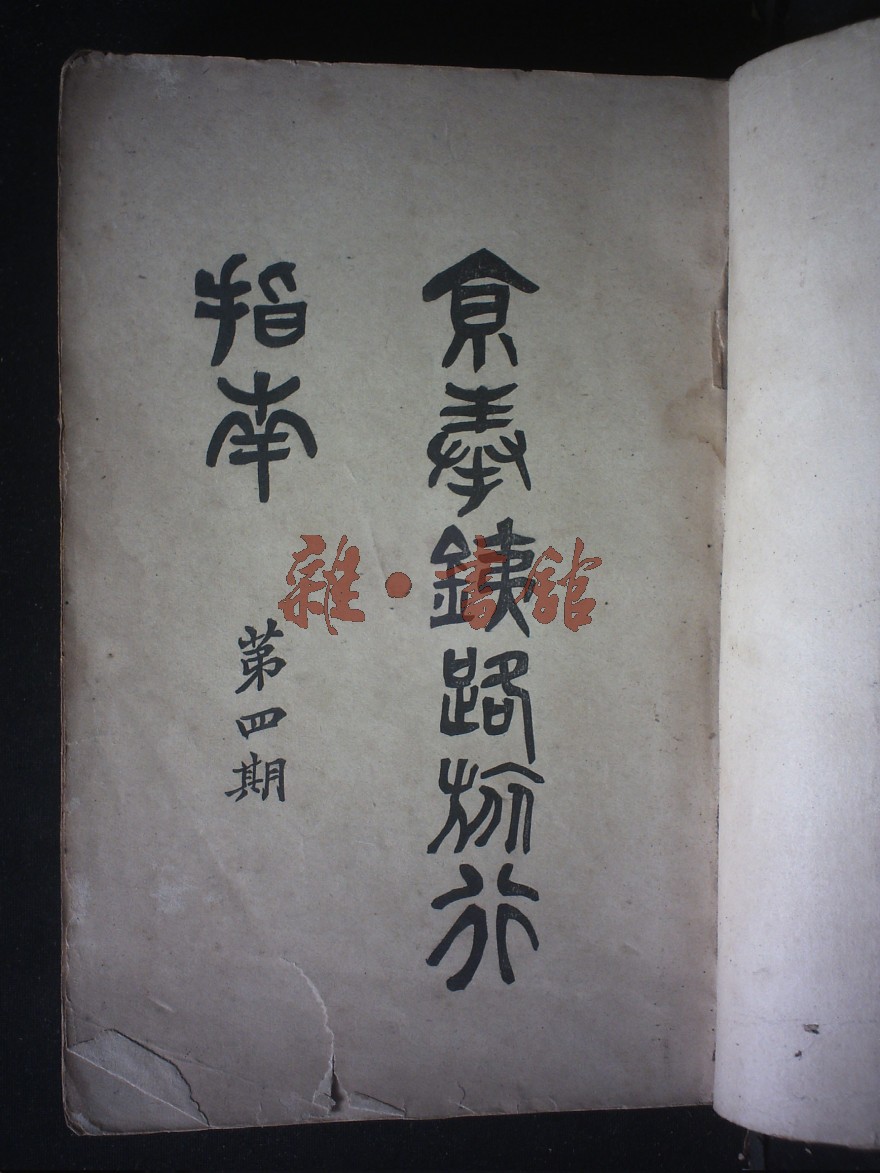 京奉鐵路旅行
指南
第四期
雜·書館